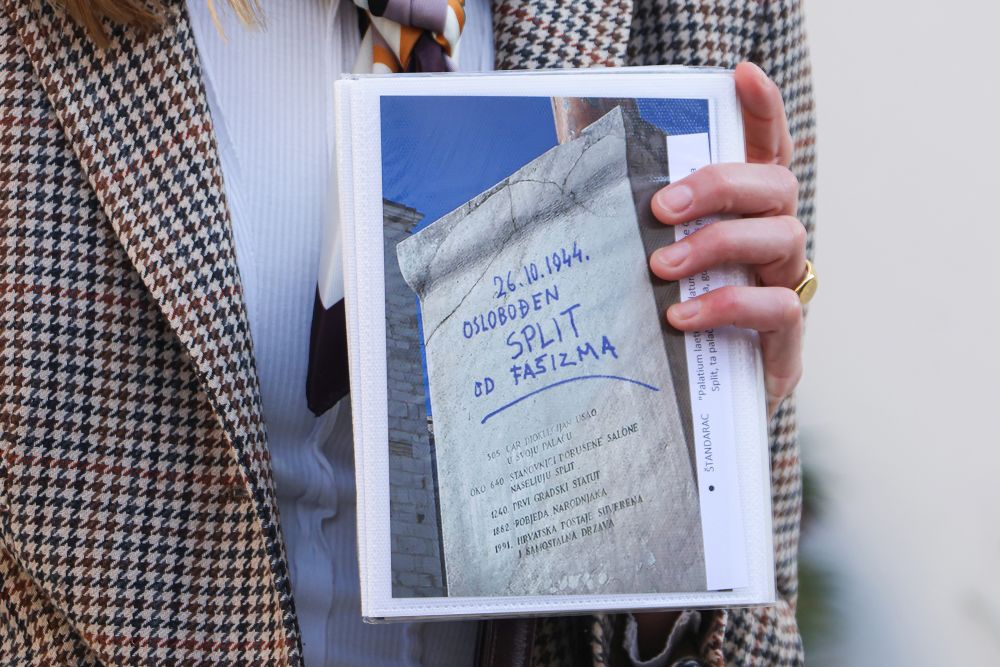 26.10.1944.
OSLOBOĐEN
SPLIT
OD FAŠIZMA
305. CAR DIOKLECIJAN UŠAO
U SVOJU PALAČU
OKO 640. STANOVNICI PORUŠENE SALONE
NASELJUJU SPLIT
1240. PRVI GRADSKI STATUT
1882. POBJEDA NARODNJAKA
1991. HRVATSKA POSTAJE SUVERENA
I SAMOSTALNA DRŽAVA
• ŠTANDARAC
"Palatium
Split, ta